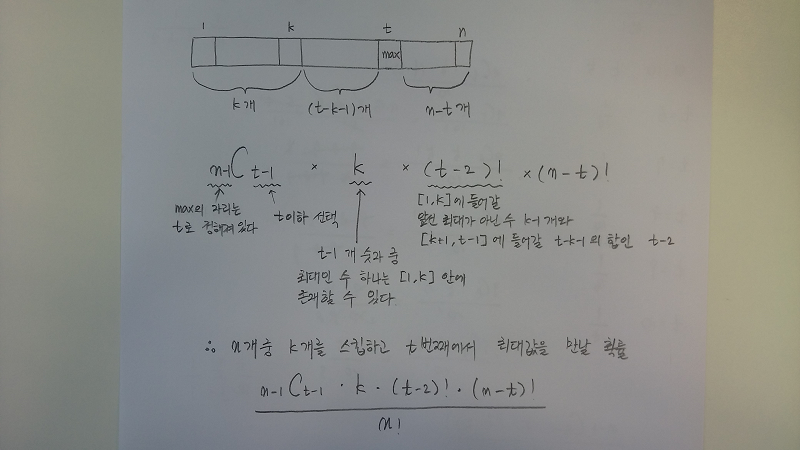 1 k t n
max
k개 (t-k-1)개 n-t개
n-1Ct-1 × k × (t-2)! × (n-t)!
max의 자리는
t로 정해져있다
t이하 선택
t-1 개 숫자 중
최대인 수 하나는 [1,k] 안에
존재할 수 있다
[1,k]에 들어갈
앞선 최대가 아닌 수 k-1개와
[k+1,t-1]에 들어갈 t-k-1의 합인 t-2
∴ n개중 k개를 스킵하고 t번째에서 최대값을 만날 확률
n-1Ct-1 · k · (t-2)! · (n-t)!
n!